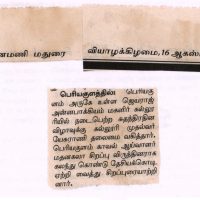 னமணி மதுரை
வியாழக்கிழமை, 16 ஆகஸ்
பெரியகுளத்தில்: பெரியகு
ளம் அருகே உள்ள ஜெயராஜ்
அன்னபாக்கியம் மகளிர் கல்லூ
ரியில் நடைபெற்ற சுதந்திரதின
விழாவுக்கு கல்லூரி முதல்வர்
யேசுராணி தலைமை வகித்தார்.
பெரியகுளம் காவல் ஆய்வாளர்
மதனகலா சிறப்பு விருந்தினராக
கலந்து கொண்டு தேசியக்கொடி
ஏற்றி வைத்து சிறப்புரையாற்றி
னார்.